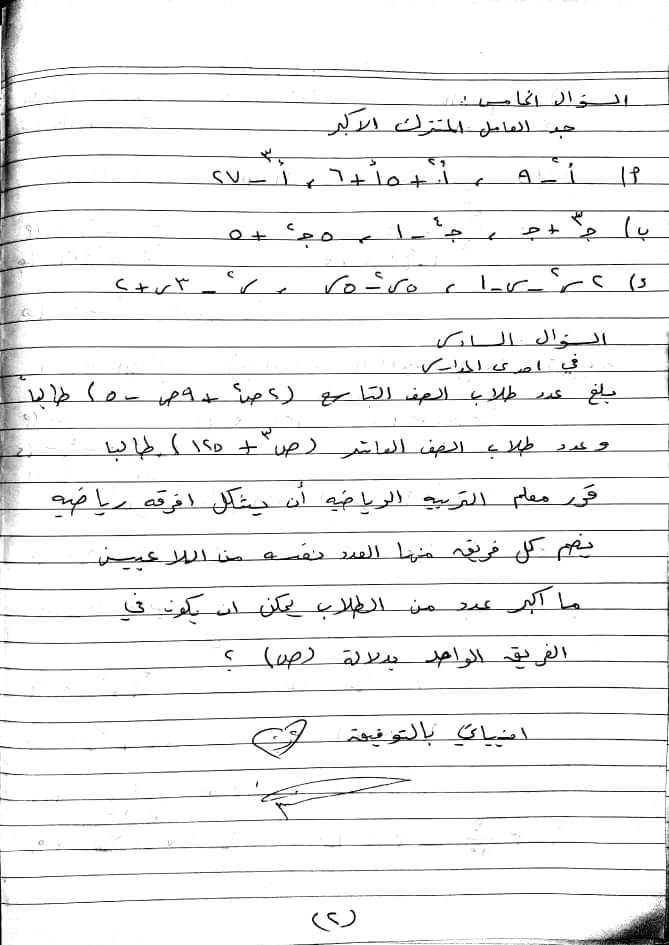 السؤال الخامس :
جد العامل المشترك الأكبر
أ) أ² - ٩ ، أ² + ٥أ + ٦ ، أ³ - ٢٧
ب) جـ³ + جـ ، جـ⁴ - ١ ، ٥جـ² + ٥
د) ٢س² - س - ١ ، ٥س² - ٥س ، س² - ٣س + ٢
السؤال السادس
في احدى المدارس
بلغ عدد طلاب الصف التاسع (٢ص² + ٩ص - ٥) طالباً
وعدد طلاب الصف العاشر (ص³ + ١٢٥) طالبا
قرر معلم التربيه الرياضيه أن يشكل افرقه رياضيه
يضم كل فريق منها العدد نفسه من اللاعبين
ما أكبر عدد من الطلاب يمكن ان يكون في
الفريق الواحد بدلالة (ص) ؟
امنياتي بالتوفيق
(٢)